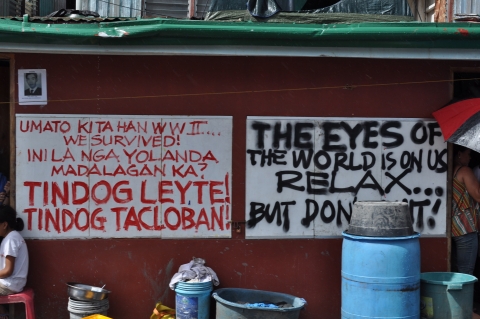 UMATO KITA HAN W W II....
WE SURVIVED!
INI LA NGA YOLANDA
MADALAGAN KA?
TINDOG LEYTE!
TINDOG TACLOBAN!
THE EYES OF
THE WORLD IS ON US
RELAX...
BUT DON'T IT!